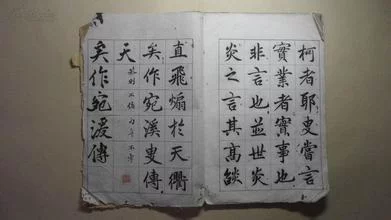 柯者耶叟嘗言
實業者實事也
非言也並世炎
炎之言其高燄
直飛煽於天衢
矣作宛溪叟傳
天
矣作宛溪傳